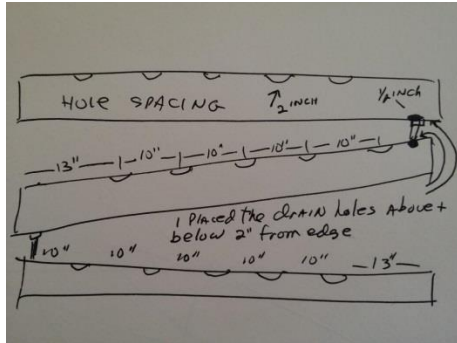 HOLE SPACING
2 INCH
1/2 INCH
13" 10" 10" 10" 10"
I PLACED the drAIN holes Above +
below 2" from edge
10" 10" 10" 10" 10" 13"